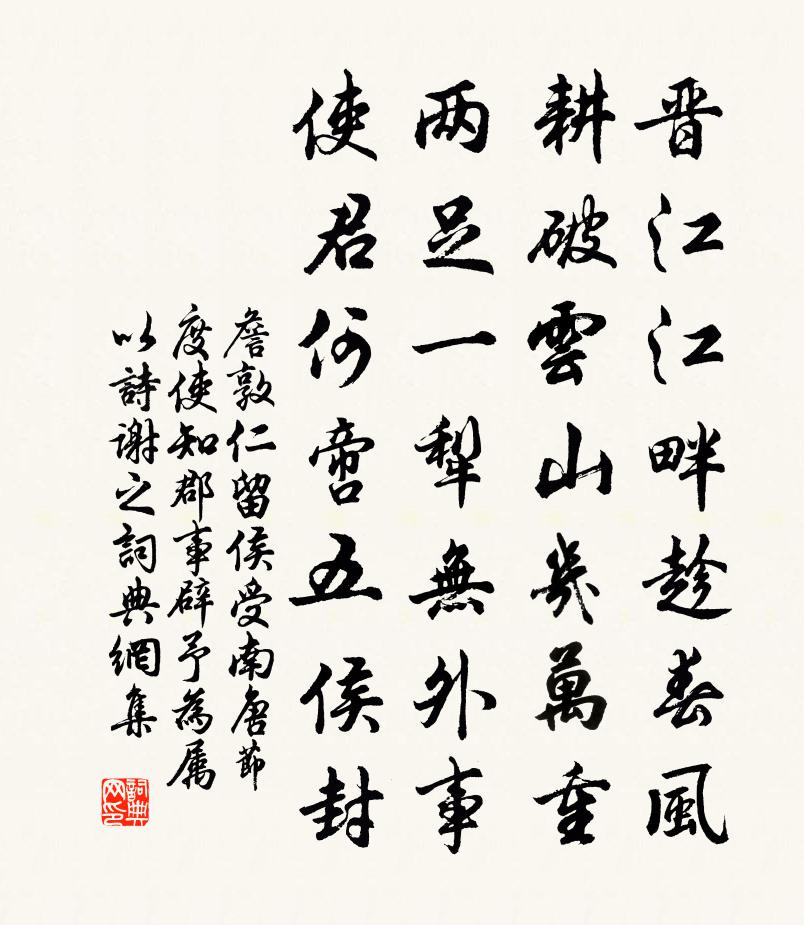 晋江江畔趁春風
耕破雲山幾萬重
两足一犁無外事
使君何啻五侯封
詹敦仁留侯受南唐節
度使知郡事辟予為属
以詩謝之詞典網集
詞典
网印